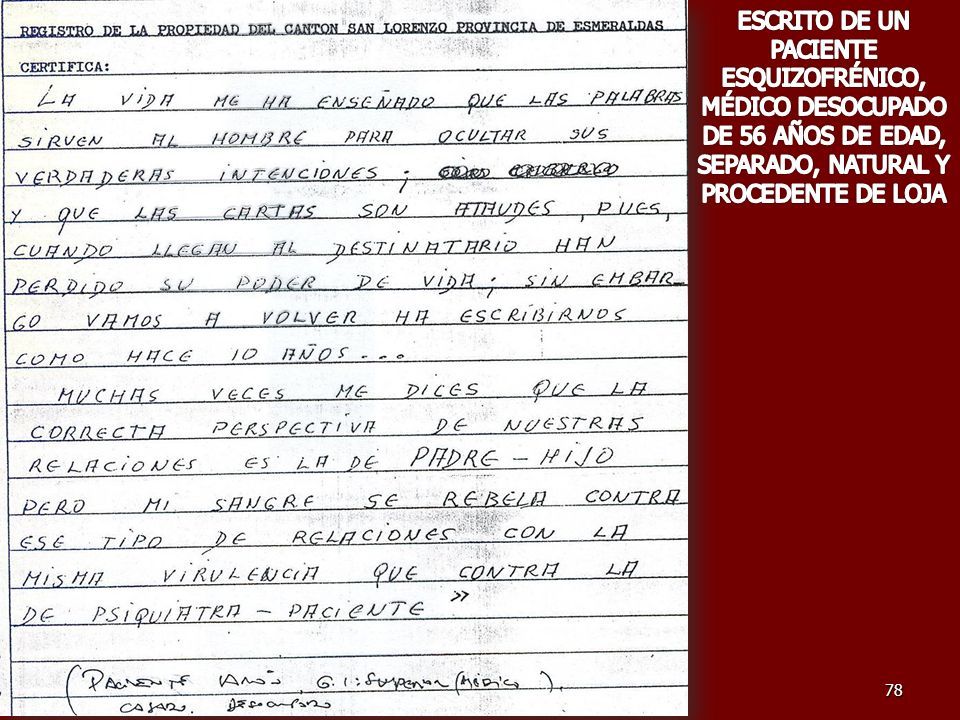 REGISTRO DE LA PROPIEDAD DEL CANTON SAN LORENZO PROVINCIA DE ESMERALDAS
CERTIFICA:
LA VIDA ME HA ENSEÑADO QUE LAS PALABRAS
SIRVEN AL HOMBRE PARA OCULTAR SUS
VERDADERAS INTENCIONES;
Y QUE LAS CARTAS SON ATAUDES, PUES,
CUANDO LLEGAN AL DESTINATARIO HAN
PERDIDO SU PODER DE VIDA; SIN EMBAR-
GO VAMOS A VOLVER HA ESCRIBIRNOS
COMO HACE 10 AÑOS...
MUCHAS VECES ME DICES QUE LA
CORRECTA PERSPECTIVA DE NUESTRAS
RELACIONES ES LA DE PADRE - HIJO
PERO MI SANGRE SE REBELA CONTRA
ESE TIPO DE RELACIONES CON LA
MISMA VIRULENCIA QUE CONTRA LA
DE PSIQUIATRA - PACIENTE »
(PACIENTE VARÓN, G.I: SUPERIOR (MÉDICO),
CASADO. DESOCUPADO
ESCRITO DE UN
PACIENTE
ESQUIZOFRÉNICO,
MÉDICO DESOCUPADO
DE 56 AÑOS DE EDAD,
SEPARADO, NATURAL Y
PROCEDENTE DE LOJA
78